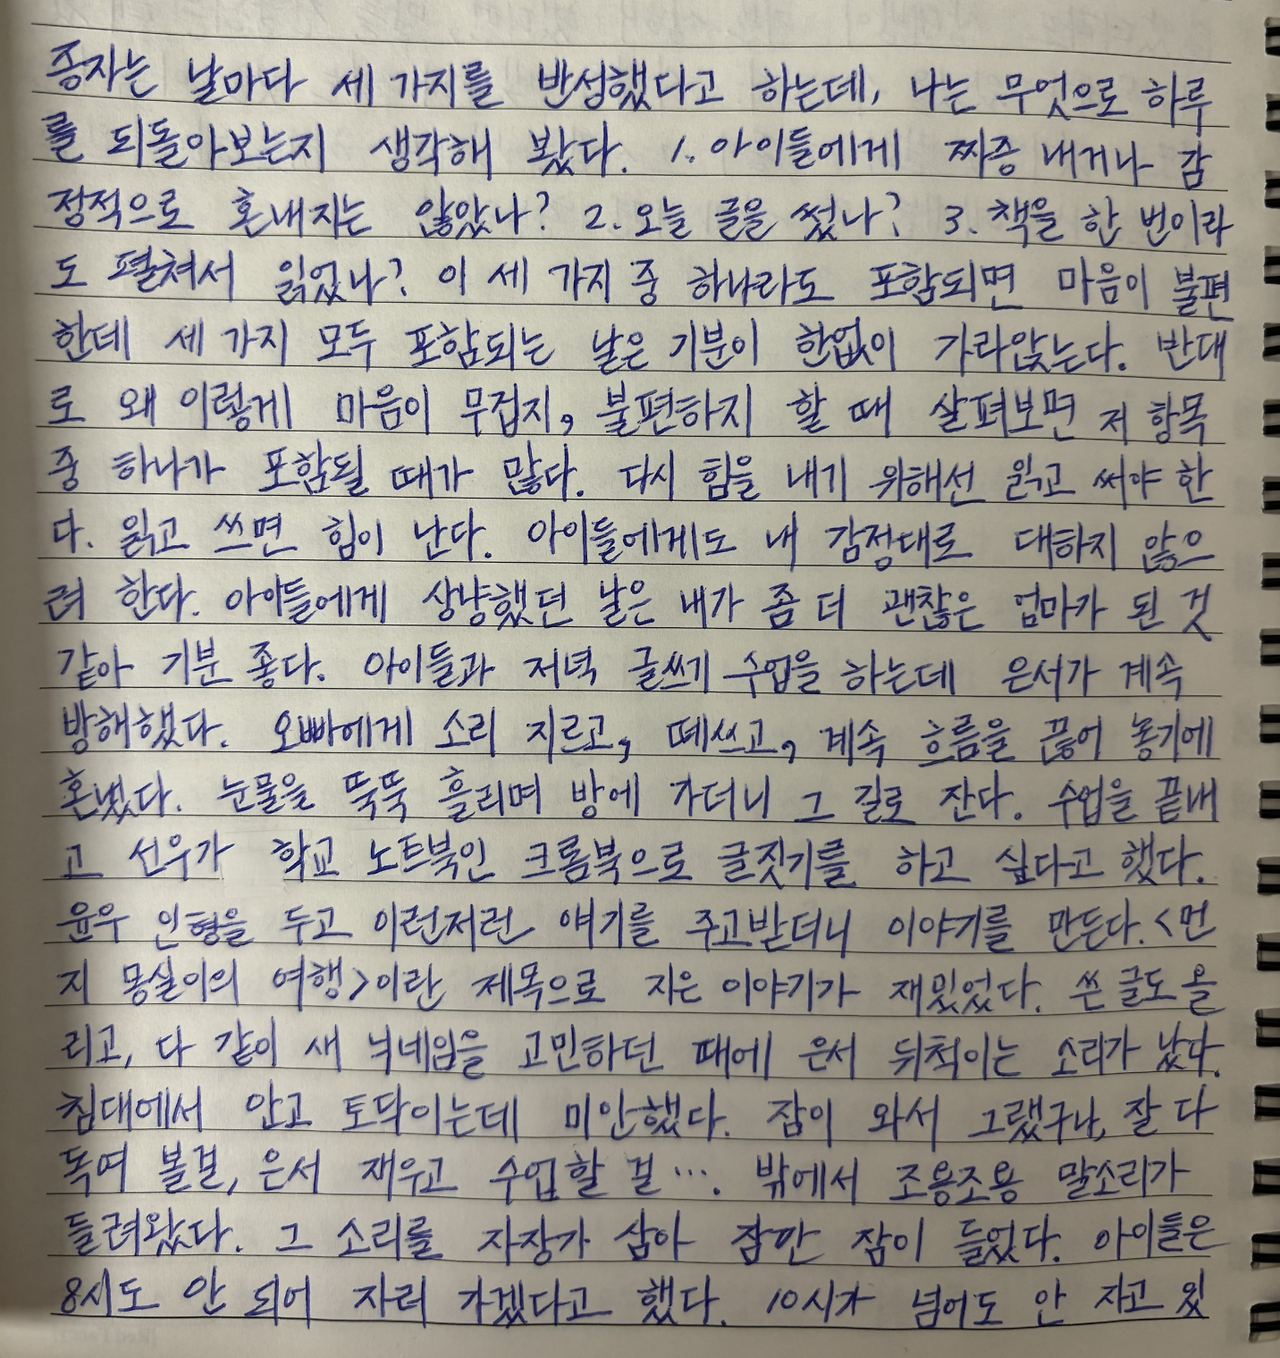 증자는 날마다 세 가지를 반성했다고 하는데, 나는 무엇으로 하루
를 되돌아보는지 생각해 봤다. 1. 아이들에게 짜증 내거나 감
정적으로 혼내지는 않았나? 2. 오늘 글을 썼나? 3. 책을 한 번이라
도 펼쳐서 읽었나? 이 세 가지 중 하나라도 포함되면 마음이 불편
한데 세 가지 모두 포함되는 날은 기분이 한없이 가라앉는다. 반대
로 왜 이렇게 마음이 무겁지, 불편하지 할 때 살펴보면 저 항목
중 하나가 포함될 때가 많다. 다시 힘을 내기 위해선 읽고 써야 한
다. 읽고 쓰면 힘이 난다. 아이들에게도 내 감정대로 대하지 않으
려 한다. 아이들에게 상냥했던 날은 내가 좀 더 괜찮은 엄마가 된 것
같아 기분 좋다. 아이들과 저녁 글쓰기 수업을 하는데 은서가 계속
방해했다. 오빠에게 소리 지르고, 떼쓰고, 계속 흐름을 끊어 놓기에
혼냈다. 눈물을 뚝뚝 흘리며 방에 가더니 그 길로 잔다. 수업을 끝내
고 선우가 학교 노트북인 크롬북으로 글짓기를 하고 싶다고 했다.
윤우 인형을 두고 이런저런 얘기를 주고받더니 이야기를 만든다. <먼
지 몽실이의 여행>이란 제목으로 지은 이야기가 재밌었다. 쓴 글도 올
리고, 다 같이 새 닉네임을 고민하던 때에 은서 뒤척이는 소리가 났다.
침대에서 안고 토닥이는데 미안했다. 잠이 와서 그랬구나, 잘 다
독여 볼걸, 은서 재우고 수업할 걸…. 밖에서 조용조용 말소리가
들려왔다. 그 소리를 자장가 삼아 잠깐 잠이 들었다. 아이들은
8시도 안 되어 자러 가겠다고 했다. 10시가 넘어도 안 자고 있